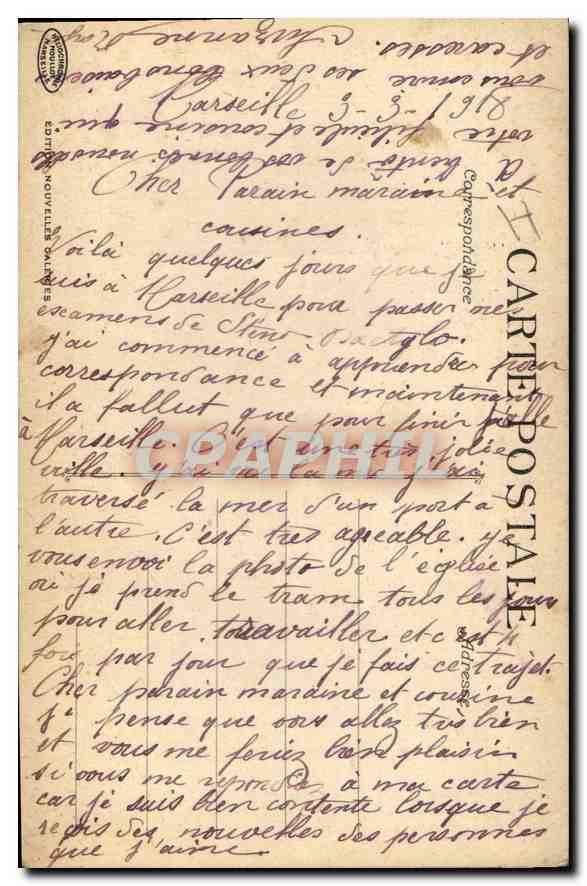 Marseille 3-3-1918
Cher Parain maraine et
cousines.
Voilà quelques jours que je
suis à Marseille pour passer me
escamens de Sténo Dactylo.
j'ai commencé à apprendre pour
correspondance et maintenant
il a fallut que pour finir j'aille
à Marseille. C'est une très jolie
ville.
traversé la mer d'un port a
l'autre. C'est tres ageable. je
vous envoi la photo de l'église
où je prend le tram tous les jours
pour aller travailler et c'est 4
fois par jour que je fais ce trajet.
Cher parain maraine et cousine
je pense que vous allez très bien
et vous me feriez bien plaisir
si vous me répondiez à ma carte
car je suis bien contente lorsque je
reçois des nouvelles des personnes
que j'aime.
A bientôt de vos bonnes nouvelles
votre filleule et cousine qui
vous envoie ses doux bons baisers
et caresses.
Suzanne
CARTE POSTALE
Correspondance
Adresse
EDITION NOUVELLES GALERIES
MARSEILLE
CPAPHIL